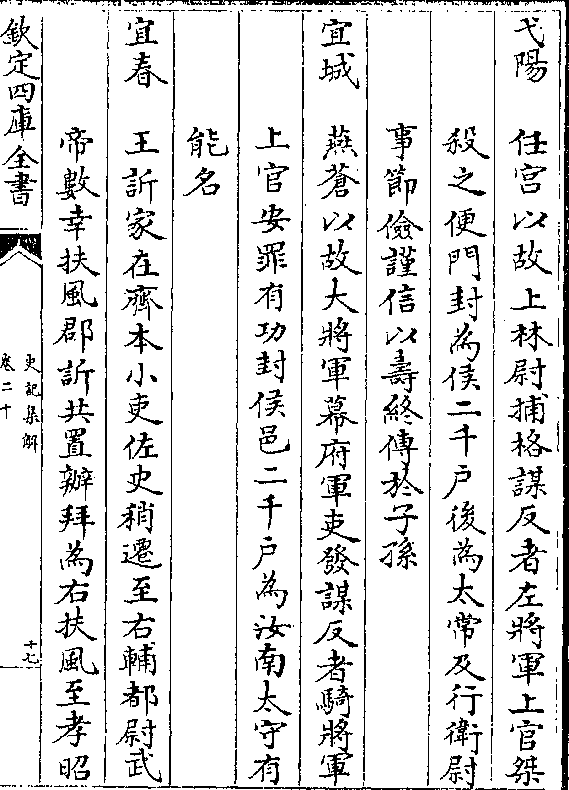 弋陽　任宫以故上林尉捕格謀反者左將軍上官桀
殺之便門封為侯二千户後為太常及行衛尉
事節儉謹信以壽終傳於子孫
宜城　燕蒼以故大將軍幕府軍吏發謀反者騎將軍
上官安罪有功封侯邑二千户為汝南太守有
能名
宜春　王訢家在齊本小吏佐史稍遷至右輔都尉武
帝數幸扶風郡訢共置辦拜為右扶風至孝昭
欽定四庫全書
史記集解
卷二十
十七